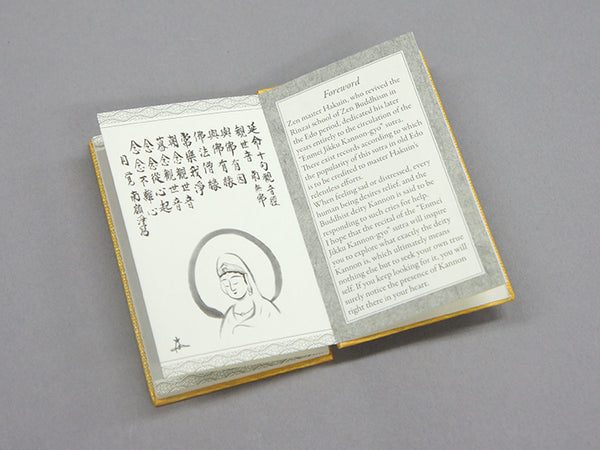 延命十句觀音經
觀世音 南無佛
與佛有因
與佛有緣
佛法僧緣
常樂我淨
朝念觀世音
暮念觀世音
念念從心起
念念不離心
Foreword
Zen master Hakuin, who revived the
Rinzai school of Zen Buddhism in
the Edo period, dedicated his later
years entirely to the circulation of the
"Enmei Jikku Kannon-gyo" sutra.
There exist records according to which
the popularity of this sutra in old Edo
is to be credited to master Hakuin's
relentless efforts.
When feeling sad or distressed, every
human being desires relief, and the
Buddhist deity Kannon is said to be
responding to such cries for help.
I hope that the recital of the "Enmei
Jikku Kannon-gyo" sutra will inspire
you to explore what exactly the deity
Kannon is, which ultimately means
nothing else but to seek your own true
self. If you keep looking for it, you will
surely notice the presence of Kannon
right there in your heart.